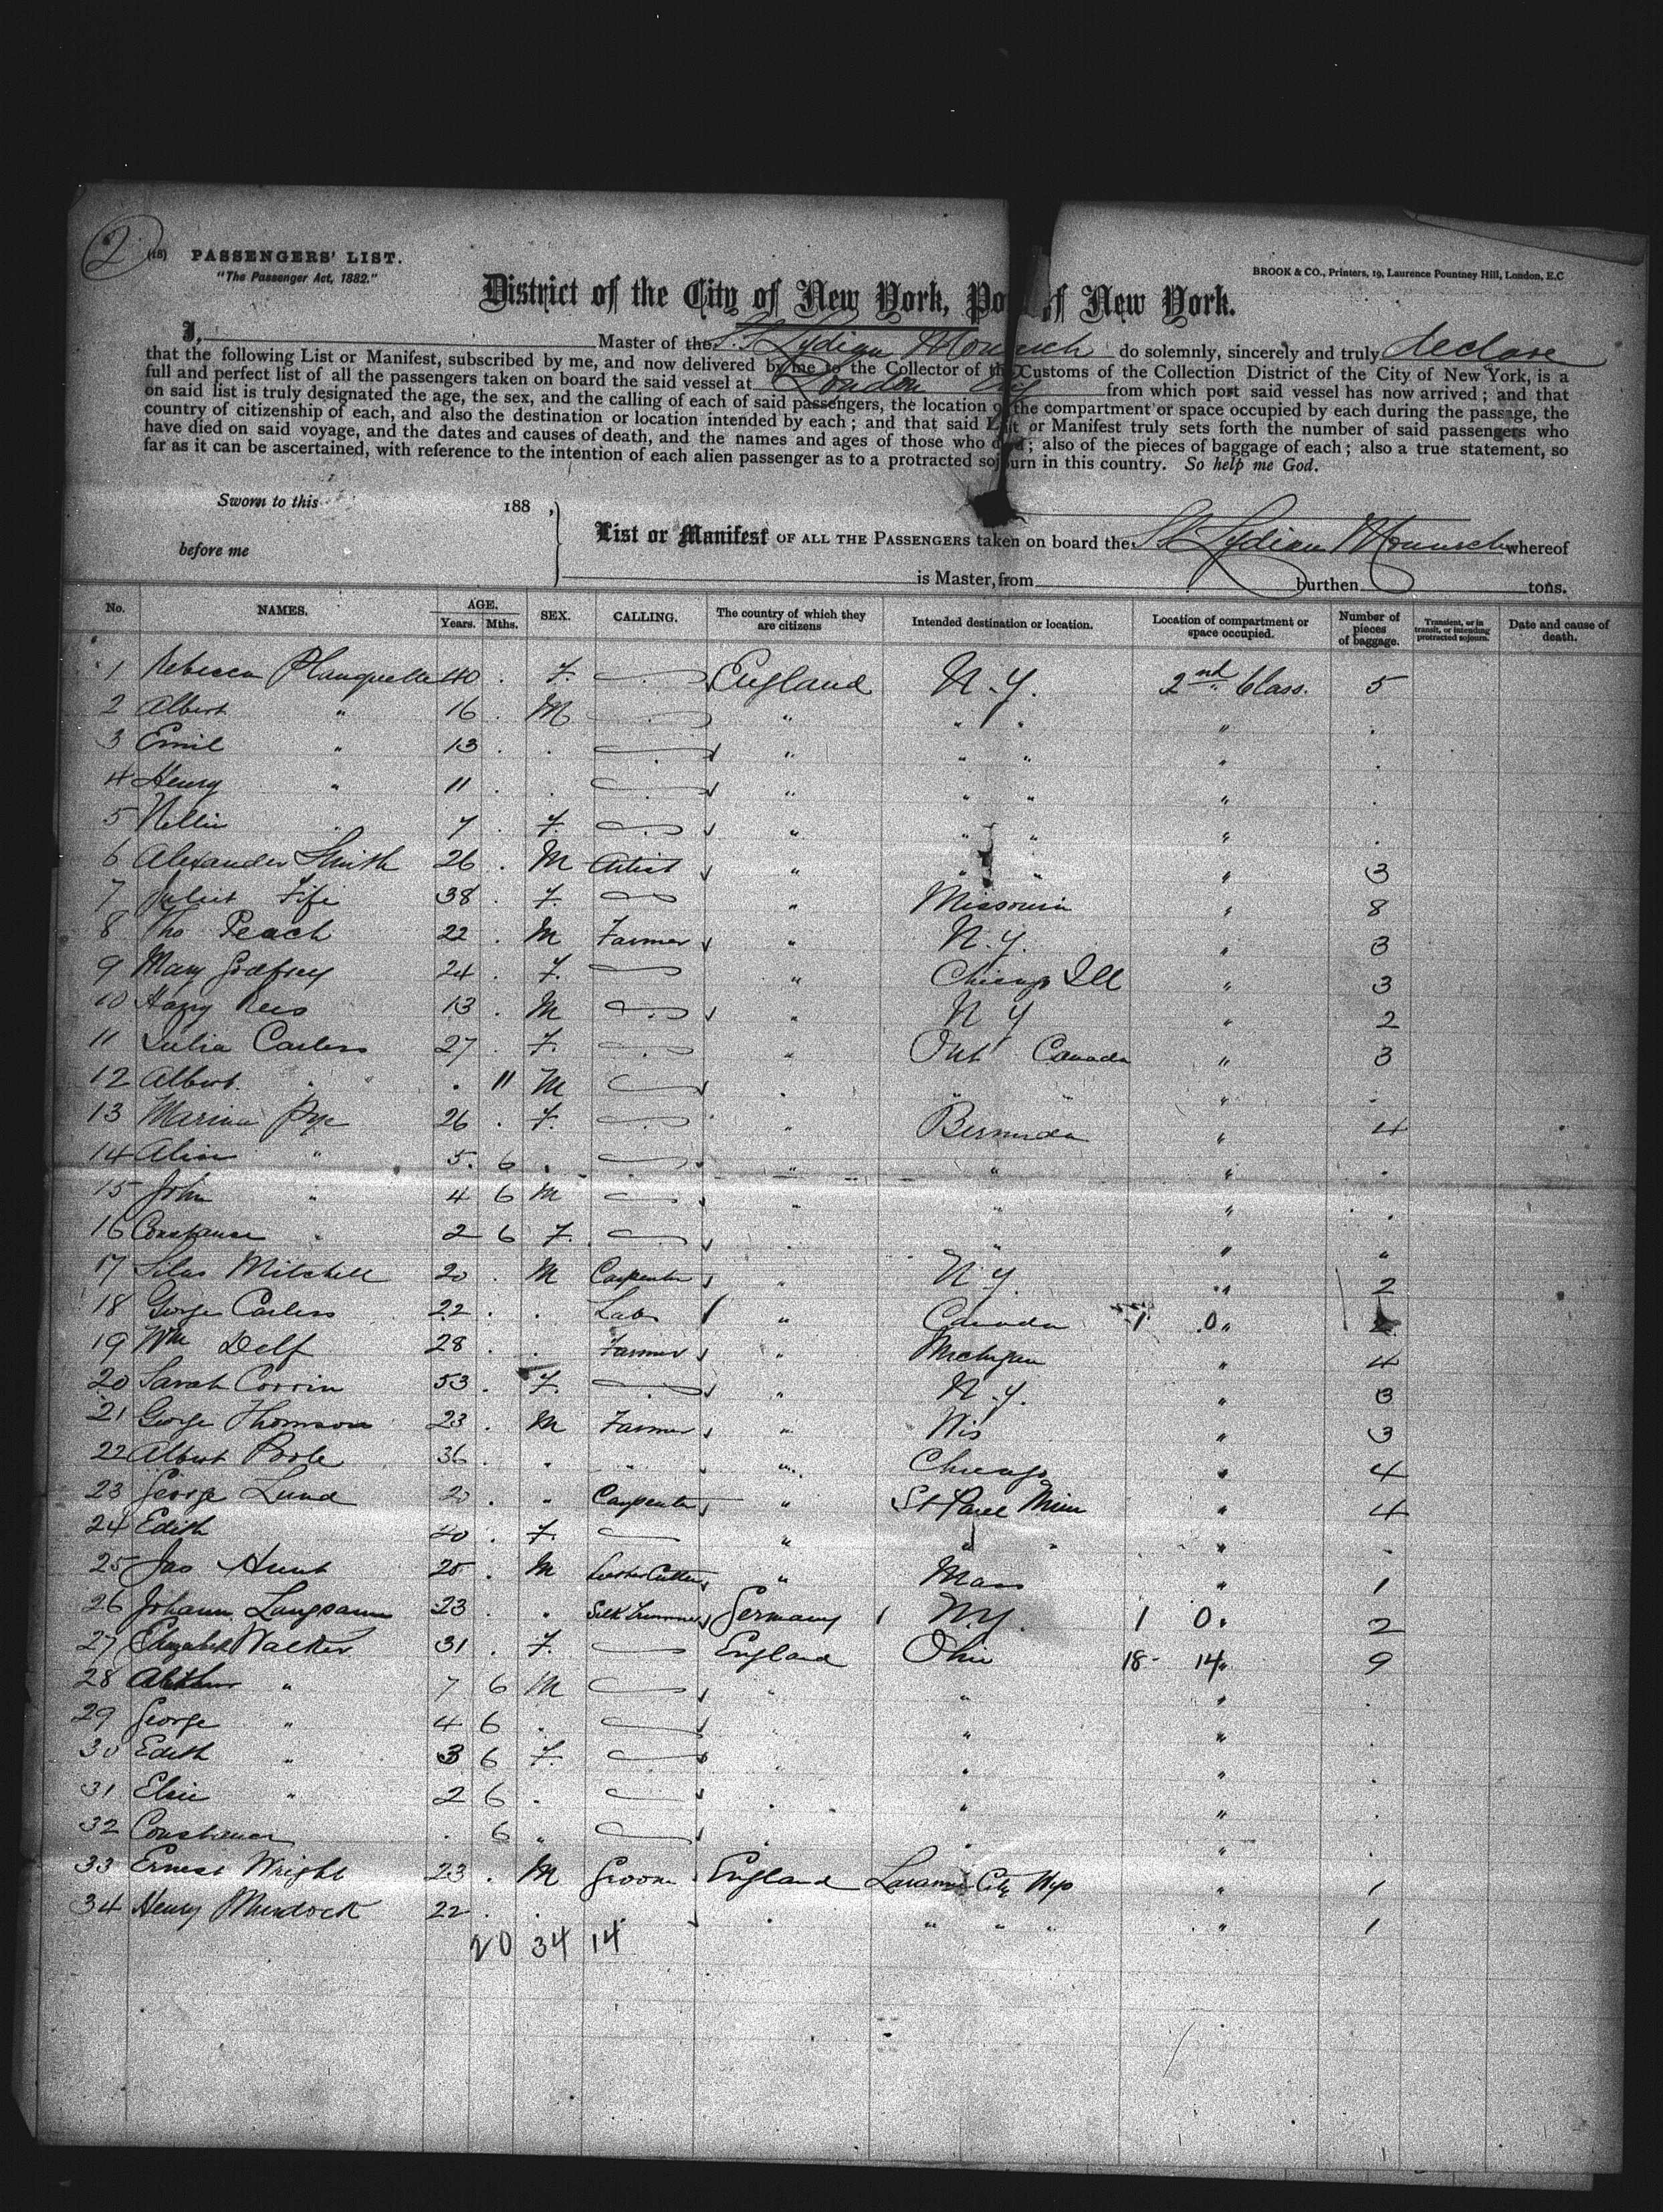 2
(18) PASSENGERS' LIST.
"The Passenger Act, 1882."
BROOK & CO., Printers, 19, Laurence Pountney Hill, London, E.C
District of the City of New York, Po of New York.
I, Master of the S.S Lydian Monarch do solemnly, sincerely and truly declare
that the following List or Manifest, subscribed by me, and now delivered by me to the Collector of the Customs of the Collection District of the City of New York, is a
full and perfect list of all the passengers taken on board the said vessel at London from which port said vessel has now arrived; and that
on said list is truly designated the age, the sex, and the calling of each of said passengers, the location of the compartment or space occupied by each during the passage, the
country of citizenship of each, and also the destination or location intended by each; and that said List or Manifest truly sets forth the number of said passengers who
have died on said voyage, and the dates and causes of death, and the names and ages of those who died; also of the pieces of baggage of each; also a true statement, so
far as it can be ascertained, with reference to the intention of each alien passenger as to a protracted sojourn in this country. So help me God.
Sworn to this 188 ,
before me
List or Manifest OF ALL THE PASSENGERS taken on board the SS Lydian Monarch whereof
is Master, from burthen tons.
No. NAMES. AGE. Years. Mths. SEX. CALLING. The country of which they are citizens Intended destination or location. Location of compartment or space occupied. Number of pieces of baggage. Transient, or in transit, or intending protracted sojourn. Date and cause of death.
1 Rebecca Planquette 40 . F. England N.Y. 2nd Class. 5
2 Albert " 16 . M " " " " .
3 Emil " 13 . . " " " " .
4 Henry " 11 . . " " " " .
5 Nellie . 7 . F. " " " " .
6 Alexander Smith 26 . M Artist " " " " 3
7 Juliet Fife 38 . F. " Missouri " 8
8 Tho Peach 22 . M Farmer " N.Y. " 3
9 Mary Godfrey 24 . F. " Chicago Ill " 3
10 Harry Rees 13 . M " N Y " 2
11 Julia Carless 27 . F. " Ont Canada " 3
12 Albert " . 11 M " " " " .
13 Marina Pye 26 . F. " Bermuda " 4
14 " 5 6 . " " " .
15 John " 4 6 M " " " .
16 Constance " 2 6 F. " " " "
17 Silas Mitchell 20 . M Carpenter " N.Y. " 2
18 George Carless 22 . . Labr " Canada 1 0 "
19 Wm Delf 28 . . Farmer " Michigan " 4
20 Sarah Corrin 53 . F. " N.Y. " 3
21 George Thomson 23 . M Farmer " Wis " 3
22 Albert Poole 36 . . " " Chicago " 4
23 George Lund 20 . " Carpenter " St Paul Minn " 4
24 Edith 20 . F. " " " .
25 Jas Hunt 25 . M Cutter " Mass " 1
26 Johann Langsam 23 . " Silk Germany N.Y. 1 0 " 2
27 Elizabeth Walker 31 . F. England Ohio 18 - 14 " 9
28 Arthur " 7 6 M " " " .
29 George " 4 6 . " " " .
30 Edith " 3 6 F. " " " .
31 Elsie " 2 6 . " " " .
32 Constance . 6 " " " " .
33 Ernest Wright 23 . M Groom England Laramie City Wyo " 1
34 Henry Murdock 22 . . . " " " " 1
20 34 14